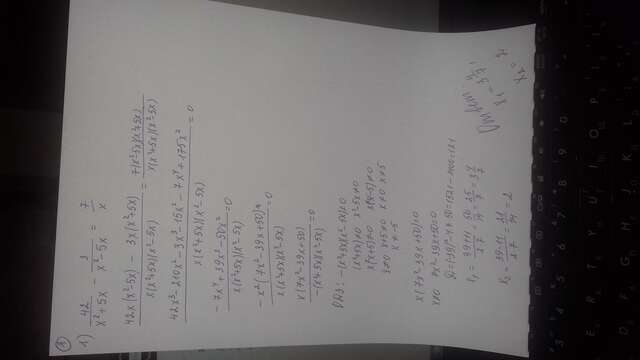 ③
1) 42/(x²+5x) - 3/(x²-5x) = 7/x
42x(x²-5x) - 3x(x²+5x) / x(x²+5x)(x²-5x) = 7(x²-5x)(x²+5x) / x(x²+5x)(x²-5x)
42x³-210x²-3x³-15x²-7x⁴+175x² / x(x²+5x)(x²-5x) = 0
-7x⁴+39x³-50x² / x(x²+5x)(x²-5x) = 0
-x²(7x²-39x+50) / x(x²+5x)(x²-5x) = 0
x(7x²-39x+50) / -(x²+5x)(x²-5x) = 0
(x²+5x)≠0 x²-5x≠0
x(x+5)≠0 x(x-5)≠0
x≠0 x+5≠0 x≠0 x≠5
x≠-5
x(7x²-39x+50)=0
x≠0 7x²-39x+50=0
x₁ = 39+11 / 2·7 = 50/14 = 25/7 = 3 4/7
x₂ = 39-11 / 2·7 = 28/14 = 2